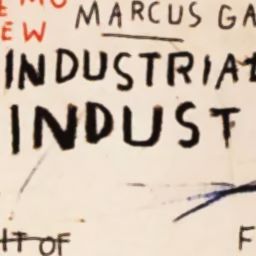 EW
MARCUS GA
INDUSTRIA
INDUST
OF
F